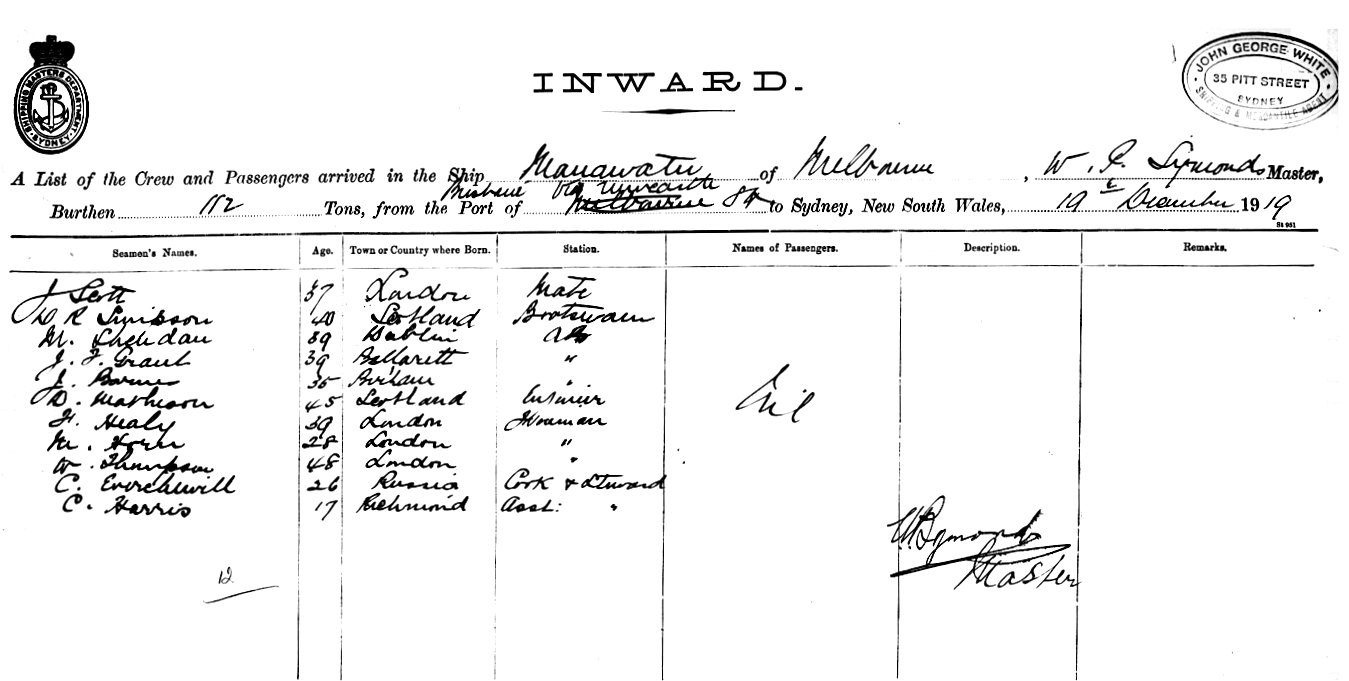 SHIPPING MASTERS DEPARTMENT. SYDNEY
JOHN GEORGE WHITE
35 PITT STREET
SYDNEY
SHIPPING & MERCANTILE AGENT
INWARD.
A List of the Crew and Passengers arrived in the Ship Manawatu of Melbourne, W. Symonds Master,
Brisbane via Newcastle
Burthen 112 Tons, from the Port of Melbourne to Sydney, New South Wales, 19 December 1919
St 951
Seamen's Names. Age. Town or Country where Born. Station. Names of Passengers. Description. Remarks.
J Scott 37 London Mate
D R Simpson 40 Scotland Boatswain
M. Sheedan 39 Dublin AB
J. F. Grant 39 Ballarett "
J. Barnes 35 "
D. Mathieson 45 Scotland
Nil
F. Healy 39 London Fireman
M. Horn 28 London "
W. Thompson 48 London "
C. 26 Russia Cook & Steward
C. Harris 17 Richmond Asst: "
W Symonds
Master
12